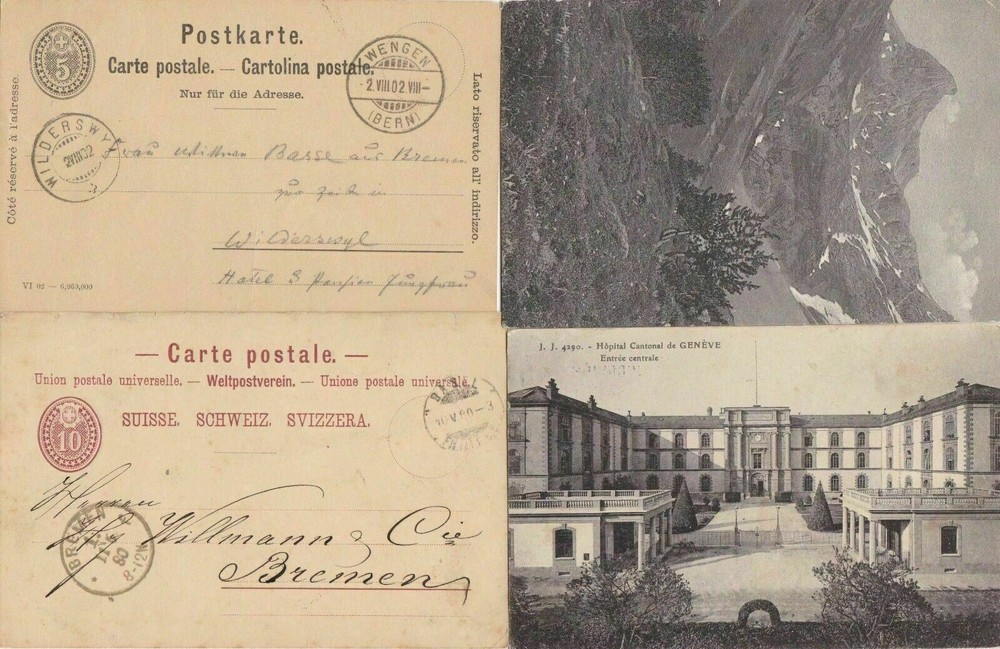 5
Postkarte.
Carte postale. — Cartolina postale.
Nur für die Adresse.
WENGEN
2.VIII.02.VIII—
(BERN)
Côté réservé à l'adresse.
Lato riservato all' indirizzo.
WILDERSWYL
2VIII02
Basse aus Bremen
zur Zeit in
Wilderswyl
Hotel & Pension Jungfrau
VI 02 — 6,260,000
— Carte postale. —
Union postale universelle. — Weltpostverein. — Unione postale universale.
SUISSE. SCHWEIZ. SVIZZERA.
10
BASEL
Herren
Willmann & Cie
Bremen
BREMEN
80
8-12V
J. J. 4290. - Hôpital Cantonal de GENÈVE
Entrée centrale